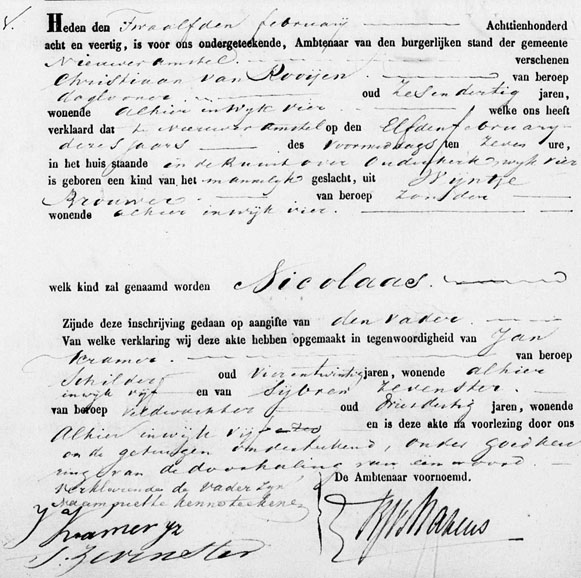 V.
Heden den Twaalfden februarij Achttienhonderd
acht en veertig, is voor ons ondergeteekende, Ambtenaar van den burgerlijken stand der gemeente
Nieuwer Amstel verschenen
Christiaan van Rooijen van beroep
daglooner oud Zes en dertig jaren,
wonende alhier in wijk vier welke ons heeft
verklaard dat te Nieuwer Amstel op den Elfden februarij
dezes jaars des Voormiddags ten Zeven ure,
in het huis staande in de Buurt over Ouderkerk wijk vier
is geboren een kind van het mannelijk geslacht, uit Wijntje
Brouwer van beroep zonder
wonende alhier in wijk vier.
welk kind zal genaamd worden Nicolaas.
Zijnde deze inschrijving gedaan op aangifte van den vader.
Van welke verklaring wij deze akte hebben opgemaakt in tegenwoordigheid van Jan
Kramer van beroep
Schilder oud Vier en twintig jaren, wonende alhier
in wijk vijf en van Sijbren Zevenster
van beroep Veldwachter oud Drie en dertig jaren, wonende
Alhier in wijk vijf en is deze akte na voorlezing door ons
en de getuigen onderteekend, onder goedkeu
ring van de doorhaling van een woord.
Verklarende de Vader zijn
Naam niet te kennen teekenen
De Ambtenaar voornoemd.
J Kramer jz
S. Zevenster